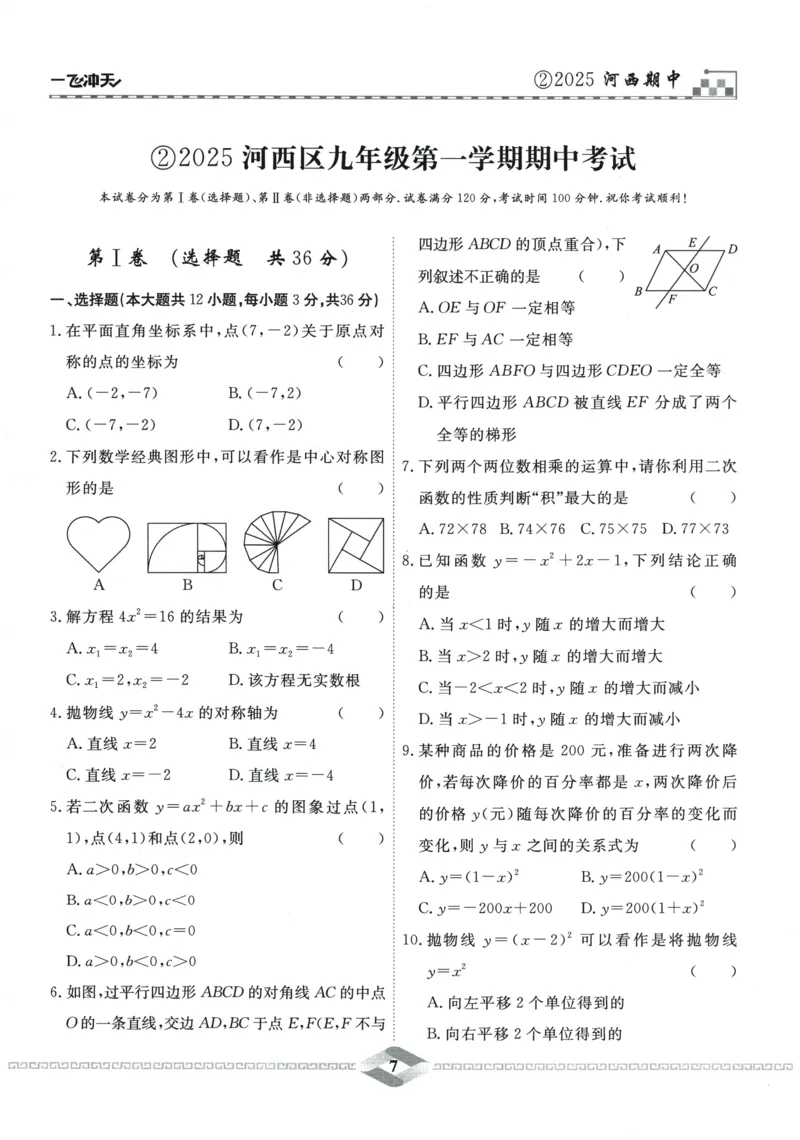 一飞冲天
②2025 河西期中
②2025 河西区九年级第一学期期中考试
本试卷分为第Ⅰ卷(选择题)、第Ⅱ卷(非选择题)两部分.试卷满分 120 分,考试时间 100 分钟.祝你考试顺利!
第Ⅰ卷 (选择题 共 36 分)
一、选择题(本大题共 12 小题,每小题 3 分,共36 分)
1.在平面直角坐标系中,点(7,-2)关于原点对
称的点的坐标为 ( )
A.(-2,-7) B.(-7,2)
C.(-7,-2) D.(7,-2)
2.下列数学经典图形中,可以看作是中心对称图
形的是 ( )
A B C D
3.解方程 4x²=16 的结果为 ( )
A.x₁=x₂=4 B.x₁=x₂=-4
C.x₁=2,x₂=-2 D.该方程无实数根
4.抛物线 y=x²-4x 的对称轴为 ( )
A.直线 x=2 B.直线 x=4
C.直线 x=-2 D.直线 x=-4
5.若二次函数 y=ax²+bx+c 的图象过点(1,
1),点(4,1)和点(2,0),则 ( )
A.a>0,b>0,c<0
B.a<0,b>0,c<0
C.a<0,b<0,c=0
D.a>0,b<0,c>0
6.如图,过平行四边形 ABCD 的对角线 AC 的中点
O的一条直线,交边 AD,BC于点 E,F(E,F 不与
四边形 ABCD 的顶点重合),下
列叙述不正确的是 ( )
A E D
O
B F C
A.OE 与OF 一定相等
B.EF 与AC 一定相等
C.四边形 ABFO 与四边形CDEO 一定全等
D.平行四边形 ABCD 被直线 EF 分成了两个
全等的梯形
7.下列两个两位数相乘的运算中,请你利用二次
函数的性质判断“积”最大的是 ( )
A.72×78 B.74×76 C.75×75 D.77×73
8.已知函数 y=-x²+2x-1,下列结论正确
的是 ( )
A.当 x<1 时,y 随 x 的增大而增大
B.当 x>2 时,y 随 x 的增大而增大
C.当-2<x<2 时,y 随 x 的增大而减小
D.当 x>-1 时,y 随 x 的增大而减小
9.某种商品的价格是 200 元,准备进行两次降
价,若每次降价的百分率都是 x,两次降价后
的价格 y(元)随每次降价的百分率的变化而
变化,则 y 与 x 之间的关系式为 ( )
A.y=(1-x)² B.y=200(1-x)²
C.y=-200x+200 D.y=200(1+x)²
10.抛物线 y=(x-2)² 可以看作是将抛物线
y=x² ( )
A.向左平移 2 个单位得到的
B.向右平移 2 个单位得到的
7